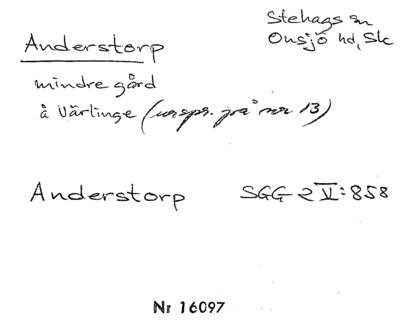 Stehags sn
Onsjö hd, Sk
Anderstorp
mindre gård
å Värlinge (urspr. på nr 13)
Anderstorp SGG 2 V:858
Nr 16097